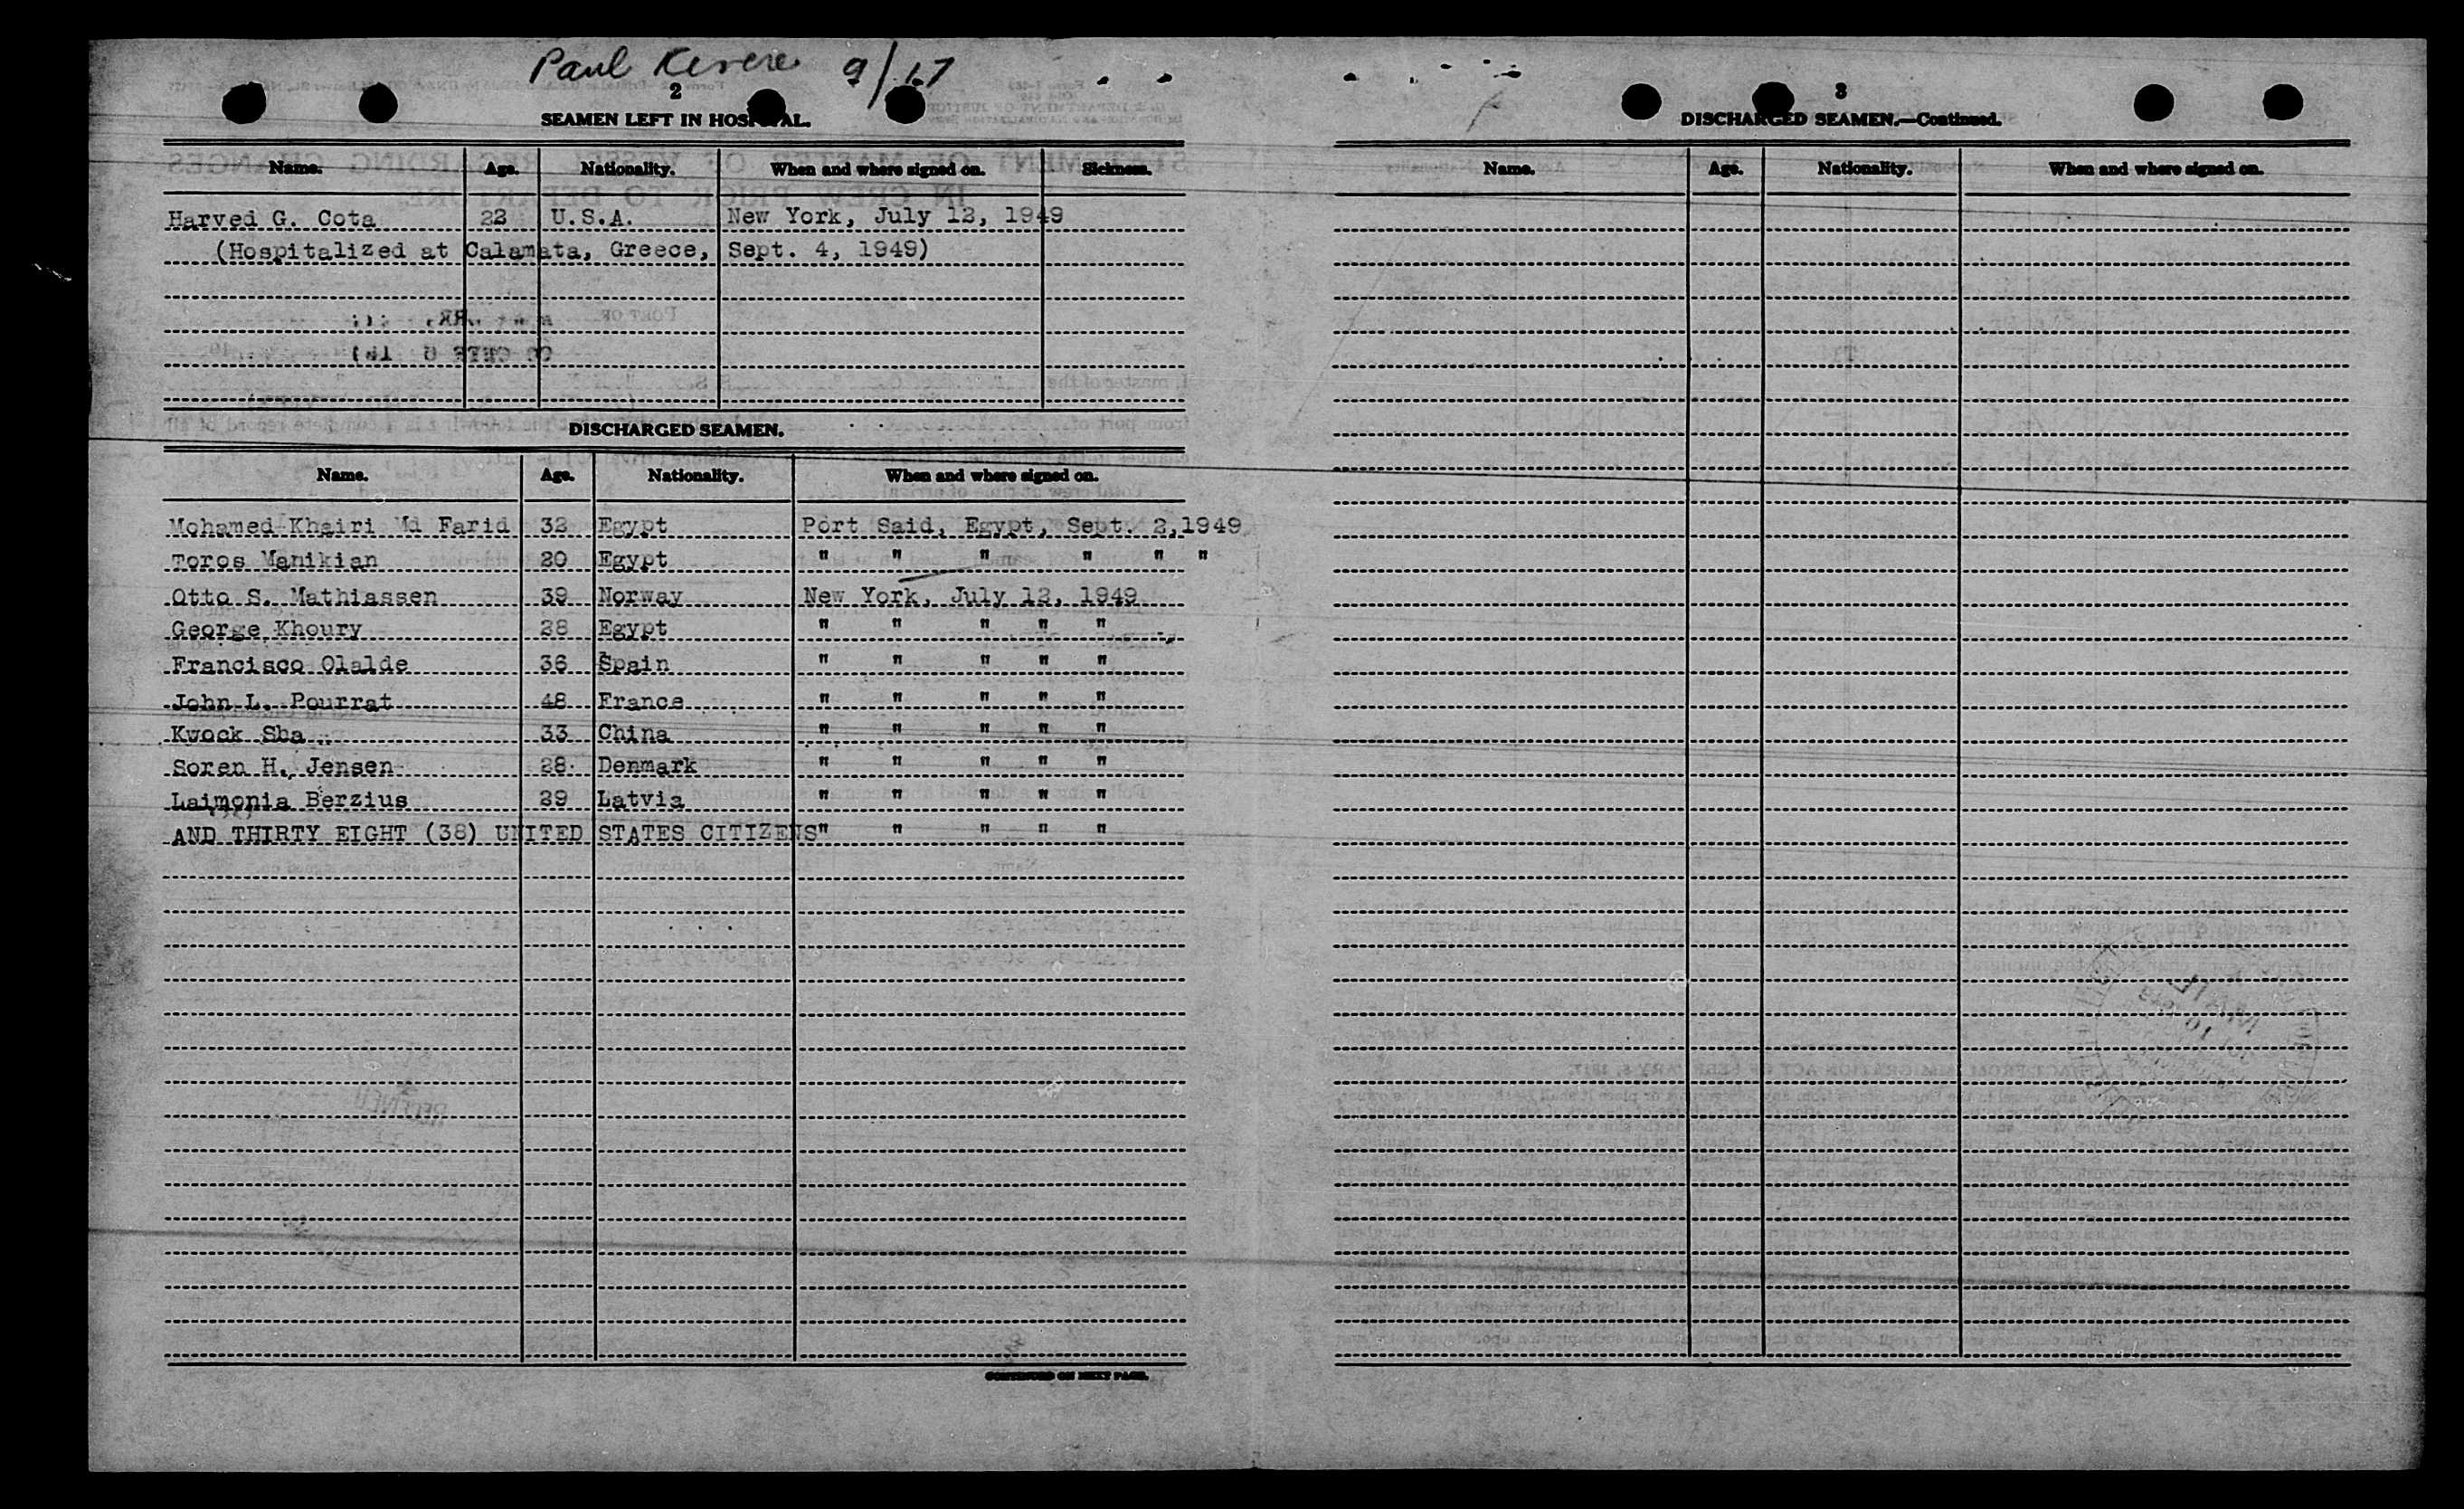 Paul Revere 9/17
2
SEAMEN LEFT IN HOSPITAL.
Name. Age. Nationality. When and where signed on. Sickness.
Harved G. Cota 22 U.S.A. New York, July 12, 1949
(Hospitalized at Calamata, Greece, Sept. 4, 1949)
DISCHARGED SEAMEN.
Name. Age. Nationality. When and where signed on.
Mohamed Khairi Md Farid 32 Egypt Port Said, Egypt, Sept. 2,1949
Toros Manikian 20 Egypt " " " " " "
Otto S. Mathiassen 39 Norway New York, July 12, 1949
George Khoury 28 Egypt " " " " "
Francisco Olalde 36 Spain " " " " "
John L. Pourrat 48 France " " " " "
Kwock Sha 33 China " " " " "
Soren H. Jensen 28 Denmark " " " " "
Laimonia Berzius 29 Latvia " " " " "
AND THIRTY EIGHT (38) UNITED STATES CITIZENS" " " " "
CONTINUED ON NEXT PAGE.
3
DISCHARGED SEAMEN.—Continued.
Name. Age. Nationality. When and where signed on.